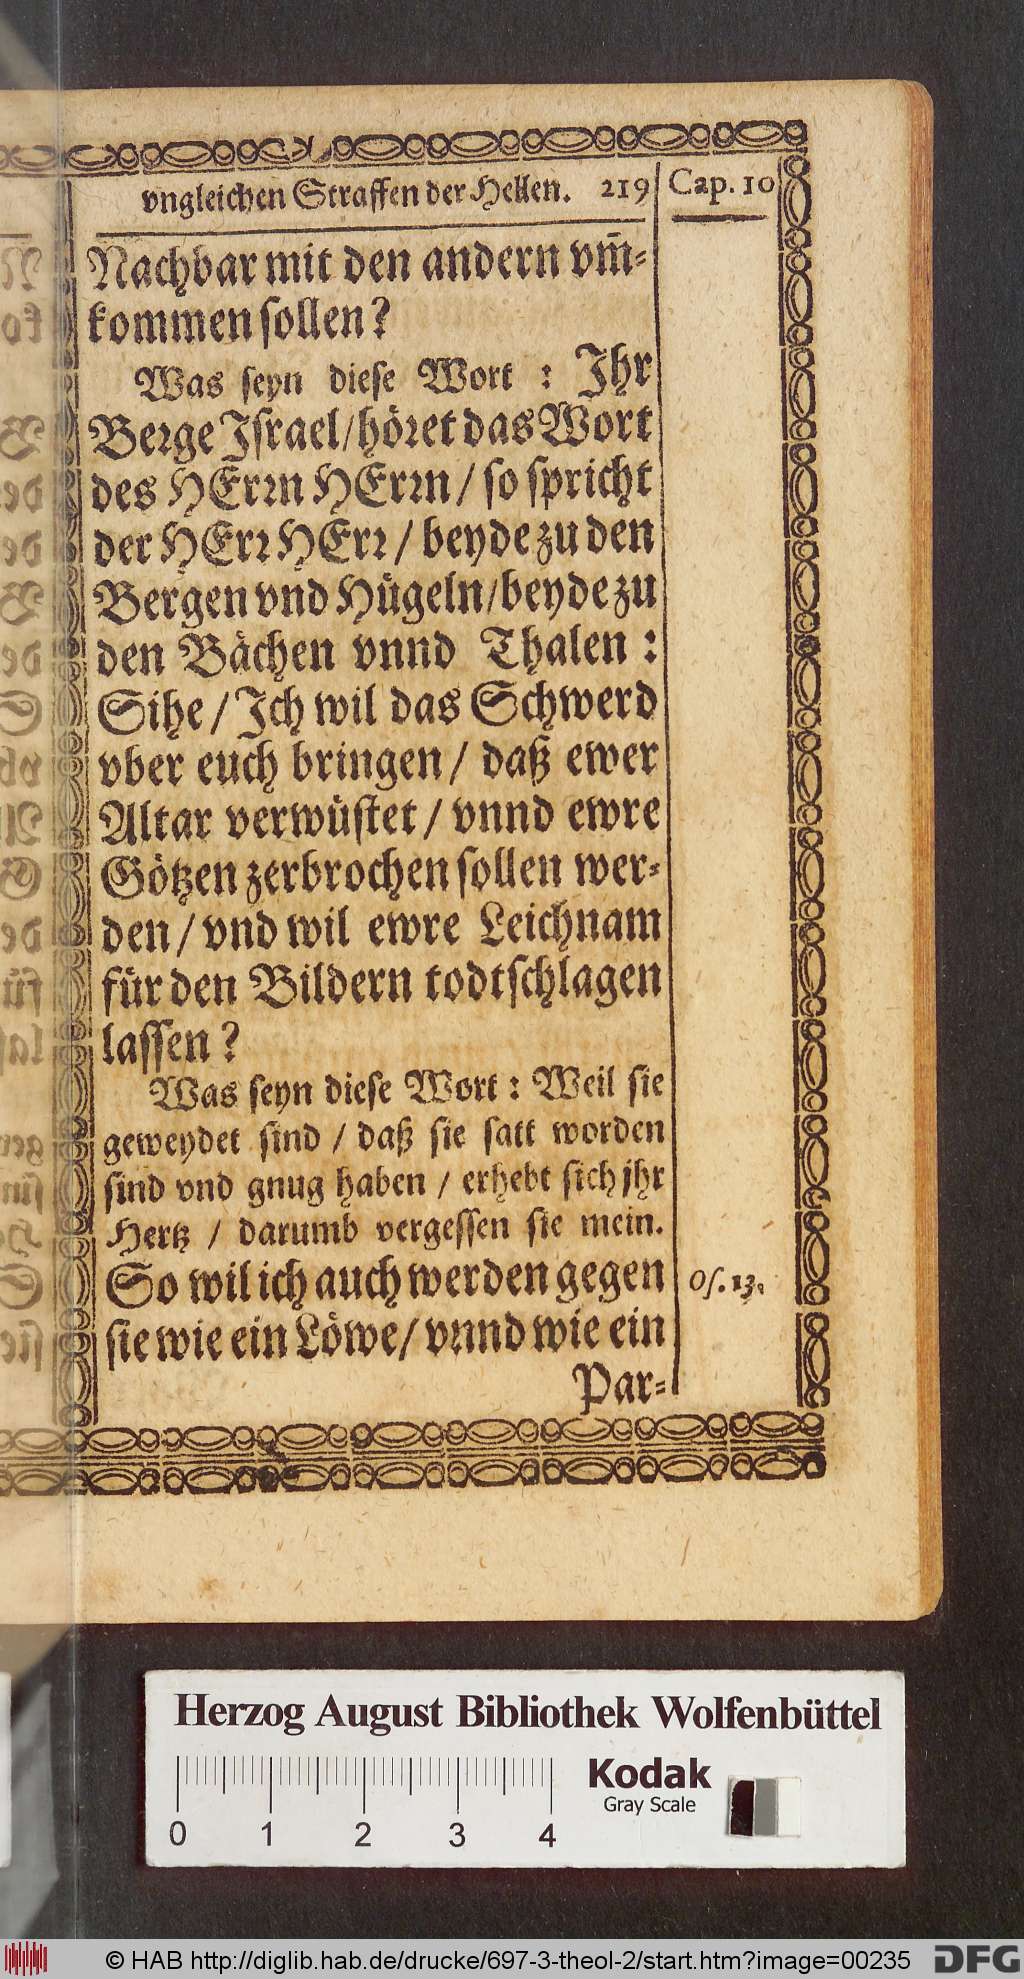 vngleichen Straffen der Hellen. 219 Cap. 10
Nachbar mit den andern vm̃-
kommen sollen?
Was seyn diese Wort : Ihr
Berge Israel/höret das Wort
des HErrn HErrn / so spricht
der HErr HErr / beyde zu den
Bergen vnd Hügeln/beyde zu
den Bächen vnnd Thalen :
Sihe / Ich wil das Schwerd
vber euch bringen / daß ewer
Altar verwüstet / vnnd ewre
Götzen zerbrochen sollen wer-
den / vnd wil ewre Leichnam
für den Bildern todtschlagen
lassen ?
Was seyn diese Wort : Weil sie
geweydet sind / daß sie satt worden
sind vnd gnug haben / erhebt sich jhr
Hertz / darumb vergessen sie mein.
So wil ich auch werden gegen Os. 13.
sie wie ein Löwe/ vnnd wie ein
Par-
Herzog August Bibliothek Wolfenbüttel
Kodak
Gray Scale
0 1 2 3 4
© HAB http://diglib.hab.de/drucke/697-3-theol-2/start.htm?image=00235 DFG